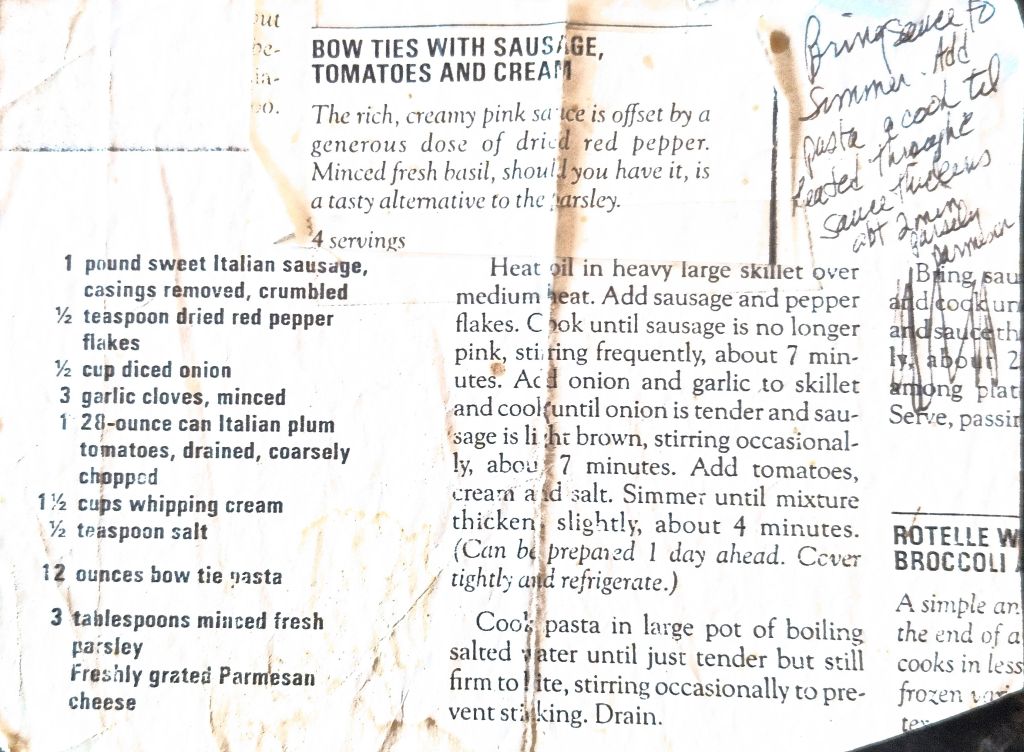 out
be-
ia-
so.
BOW TIES WITH SAUSAGE,
TOMATOES AND CREAM
The rich, creamy pink sauce is offset by a
generous dose of dried red pepper.
Minced fresh basil, should you have it, is
a tasty alternative to the parsley.
4 servings
1 pound sweet Italian sausage,
casings removed, crumbled
½ teaspoon dried red pepper
flakes
½ cup diced onion
3 garlic cloves, minced
1 28-ounce can Italian plum
tomatoes, drained, coarsely
chopped
1½ cups whipping cream
½ teaspoon salt
12 ounces bow tie pasta
3 tablespoons minced fresh
parsley
Freshly grated Parmesan
cheese
Heat oil in heavy large skillet over
medium heat. Add sausage and pepper
flakes. Cook until sausage is no longer
pink, stirring frequently, about 7 min-
utes. Add onion and garlic to skillet
and cook until onion is tender and sau-
sage is light brown, stirring occasional-
ly, about 7 minutes. Add tomatoes,
cream and salt. Simmer until mixture
thickens slightly, about 4 minutes.
(Can be prepared 1 day ahead. Cover
tightly and refrigerate.)
Cook pasta in large pot of boiling
salted water until just tender but still
firm to bite, stirring occasionally to pre-
vent sticking. Drain.
Bring sauce to
Simmer. Add
pasta & cook til
heated through &
sauce thickens
abt 2 min
parsely
parmesan
Bring sau
and cook un
and sauce th
ly, about 2
among plat
Serve, passin
ROTELLE W
BROCCOLI A
A simple an
the end of a
cooks in less
frozen